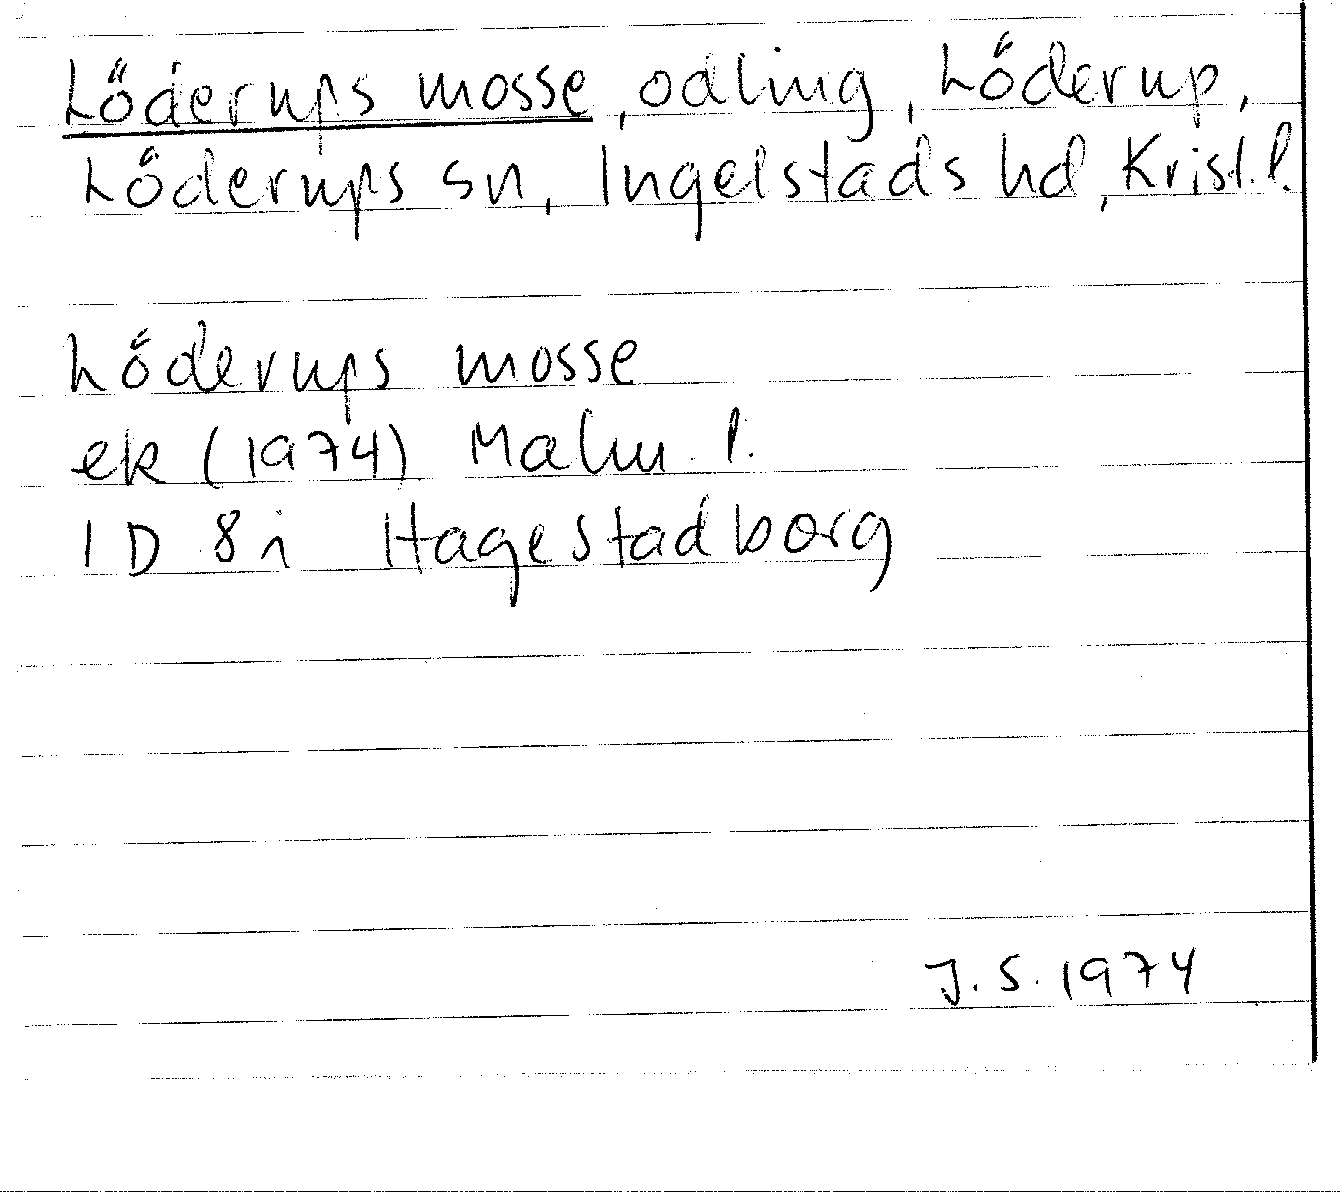 Löderups mosse, odling, Löderup,
Löderups sn, Ingelstads hd, Krist. l.
Löderups mosse
ek (1974) Malm. l.
1D 8i Hagestadborg
J. S. 1974